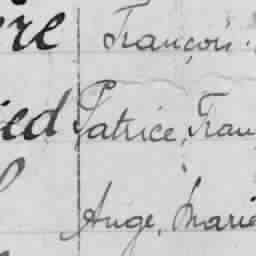 ère François
ied Patrice, Fran
Ange, Marie